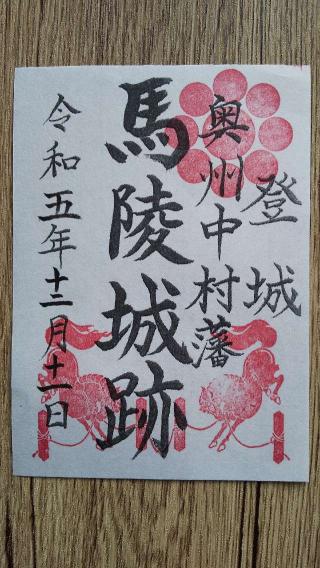 登城
奥州中村藩
馬陵城跡
令和五年十二月十一日